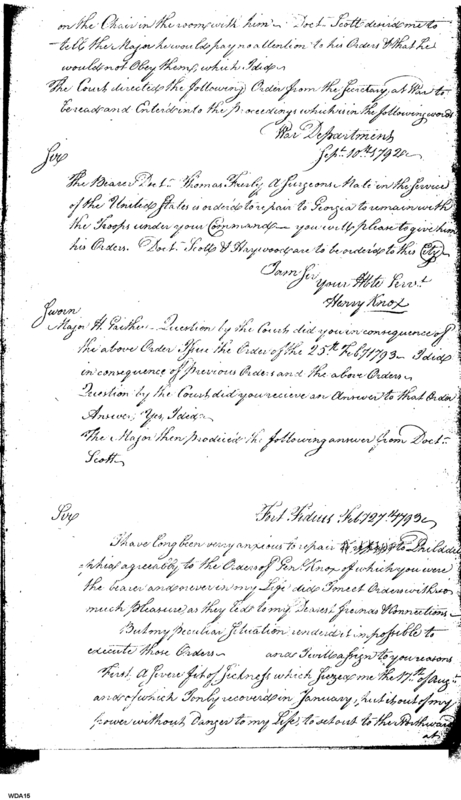 on the Chair in the room with him - Doct Scott desired me to
tell the Major he would pay no attention to his Orders & that he
would not Obey them, which I did
The Court directed the following Order from the Secretary at War to
be read and Enter'd into the Proceedings which is in the following words
War Department
Sept. 10th 1792
Sir
The Bearer Doct. Thomas a Surgeons Mate in the Service
of the United States is ordered to repair to Georgia to remain with
the Troops under your Command - you will please to give him
his Orders. Doct. Scott & Haywood are to be ordered to this City
I am Sir
Your Obt. Servt.
Henry Knox
Sworn
Major H. Gaither - Question by the Court did you in consequence of
the above Order Issue the Order of the 25th Feby 1793 - I did
in consequence of previous Orders and the above Orders
Question by the Court did you recieve an Answer to that Order
Answer, Yes, I did
The Major then produced the following answer from Doct
Scott
Fort Fidius Feby 27th 1793
Sir
I have long been very anxious to repair to Philadel
phia agreeably to the Orders of Genl. Knox of which you were
the bearer and never in my Life did I meet Orders with so
much pleasure as they led to my Dearest friends & Connections
But my peculiar Situation renders it impossible to
execute those Orders and I will assign to you reasons
First, A Severe fit of Sickness which Seized me the 17th of Augt.
and of which I only recover'd in January, put it out of my
power without Danger to my Life, to set out to the Northward
at
WDA15